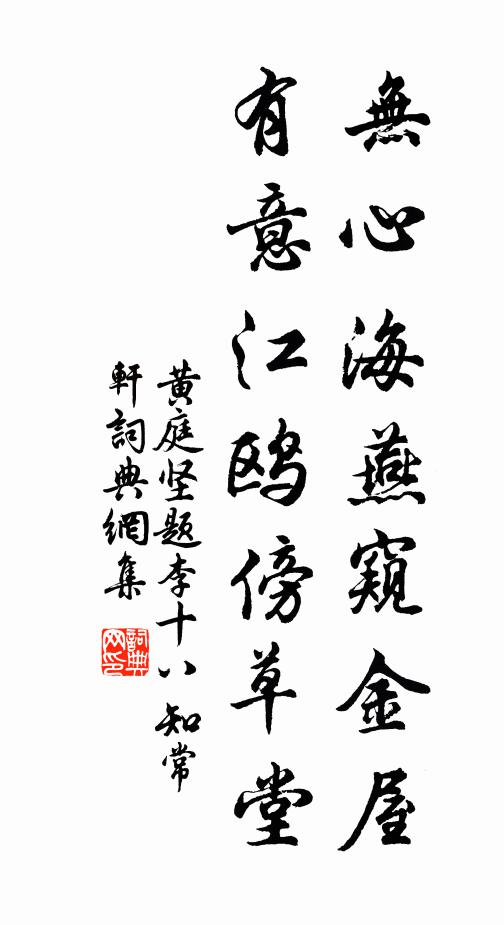 無心海燕窺金屋
有意江鸥傍草堂
黄庭坚题李十八知常
軒詞典網集
詞典网印